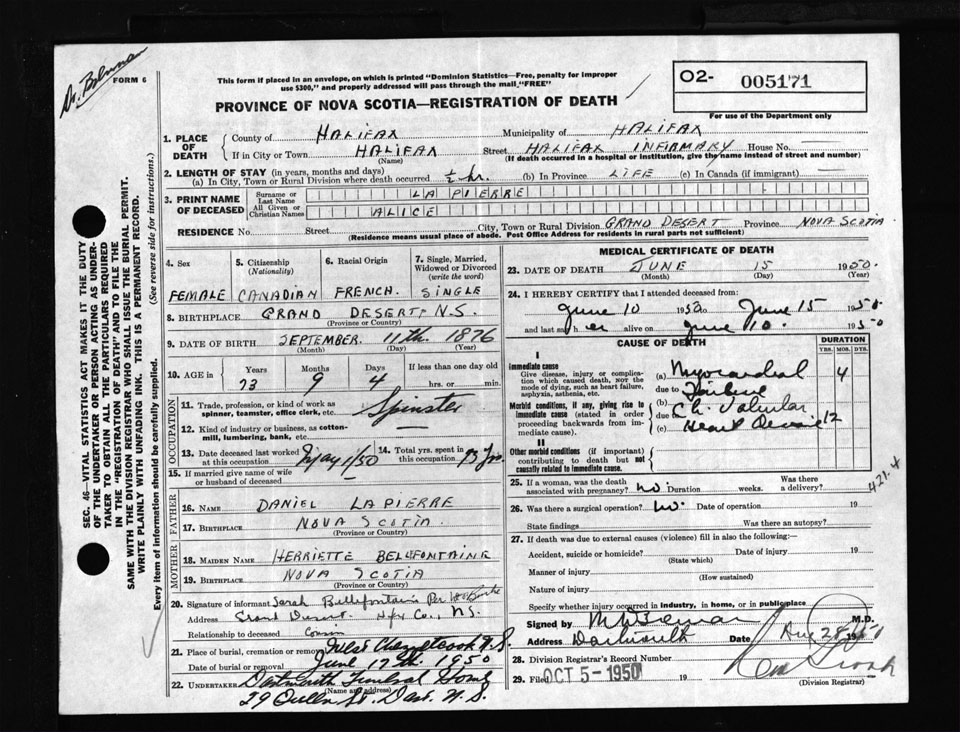 Dr. Brennan
FORM 6
This form if placed in an envelope, on which is printed "Dominion Statistics—Free, penalty for improper
use $300," and properly addressed will pass through the mail, "FREE"
PROVINCE OF NOVA SCOTIA—REGISTRATION OF DEATH
O2- 005171
For use of the Department only
SEC. 46—VITAL STATISTICS ACT MAKES IT THE DUTY
OF THE UNDERTAKER OR PERSON ACTING AS UNDER-
TAKER TO OBTAIN ALL THE PARTICULARS REQUIRED
IN THE "REGISTRATION OF DEATH" AND TO FILE THE
SAME WITH THE DIVISION REGISTRAR WHO SHALL ISSUE THE BURIAL PERMIT.
WRITE PLAINLY WITH UNFADING INK. THIS IS A PERMANENT RECORD.
Every item of information should be carefully supplied. (See reverse side for instructions.)
1. PLACE OF DEATH
County of HALIFAX Municipality of HALIFAX
If in City or Town HALIFAX Street HALIFAX INFIRMARY House No.
(Name) (If death occurred in a hospital or institution, give the name instead of street and number)
2. LENGTH OF STAY (in years, months and days)
(a) In City, Town or Rural Division where death occurred ½ hr. (b) In Province LIFE (c) In Canada (if immigrant)
3. PRINT NAME OF DECEASED
Surname or Last Name LA PIERRE
All Given or Christian Names ALICE
RESIDENCE No. Street City, Town or Rural Division GRAND DESERT Province NOVA SCOTIA
(Residence means usual place of abode. Post Office Address for residents in rural parts not sufficient)
4. Sex 5. Citizenship (Nationality) 6. Racial Origin 7. Single, Married, Widowed or Divorced (write the word)
FEMALE CANADIAN FRENCH. SINGLE
8. BIRTHPLACE GRAND DESERT N.S.
(Province or Country)
9. DATE OF BIRTH SEPTEMBER 11th. 1876
(Month) (Day) (Year)
10. AGE in Years Months Days If less than one day old
73 9 4 hrs. or min.
OCCUPATION
11. Trade, profession, or kind of work as
spinner, teamster, office clerk, etc. Spinster
12. Kind of industry or business, as cotton-
mill, lumbering, bank, etc.
13. Date deceased last worked at this occupation May 1/50 14. Total yrs. spent in this occupation
15. If married give name of wife
or husband of deceased
FATHER
16. NAME DANIEL LA PIERRE
17. BIRTHPLACE NOVA SCOTIA.
(Province or Country)
MOTHER
18. MAIDEN NAME HERRIETTE BELLFONTAINE
19. BIRTHPLACE NOVA SCOTIA
(Province or Country)
20. Signature of informant Sarah Bellefontaine Per
Address Grand Desert. Hfx Co., N.S.
Relationship to deceased Cousin
21. Place of burial, cremation or removal West Chezzetcook N.S.
Date of burial or removal June 17th 1950
22. UNDERTAKER Dartmouth Funeral Home
(Name and address)
29 Queen St. Dart. N.S.
MEDICAL CERTIFICATE OF DEATH
23. DATE OF DEATH JUNE 15 1950.
(Month) (Day) (Year)
24. I HEREBY CERTIFY that I attended deceased from:
June 10 1950 to June 15 1950
and last saw her alive on June 10. 1950
CAUSE OF DEATH DURATION
YRS. MOS. DYS.
I
Immediate cause
Give disease, injury or complica-
tion which caused death, NOT the
mode of dying, such as heart failure,
asphyxia, asthenia, etc.
(a) Myocardial 4
due to Failure
Morbid conditions, if any, giving rise to
immediate cause (stated in order
proceeding backwards from im-
mediate cause).
(b) Ch. Valvular
due to
(c) Heart Disease 12
II
Other morbid conditions (if important)
contributing to death but not
causally related to immediate cause.
421.4
25. If a woman, was the death
associated with pregnancy? No. Duration weeks. Was there a delivery?
26. Was there a surgical operation? No. Date of operation 19
State findings Was there an autopsy?
27. If death was due to external causes (violence) fill in also the following:—
Accident, suicide or homicide? Date of injury 19
(State which)
Manner of injury
(How sustained)
Nature of injury
Specify whether injury occurred in industry, in home, or in public place
Signed by M.D.
Address Dartmouth Date Aug 28 1950
28. Division Registrar's Record Number
29. Filed OCT 5 - 1950 19
(Division Registrar)